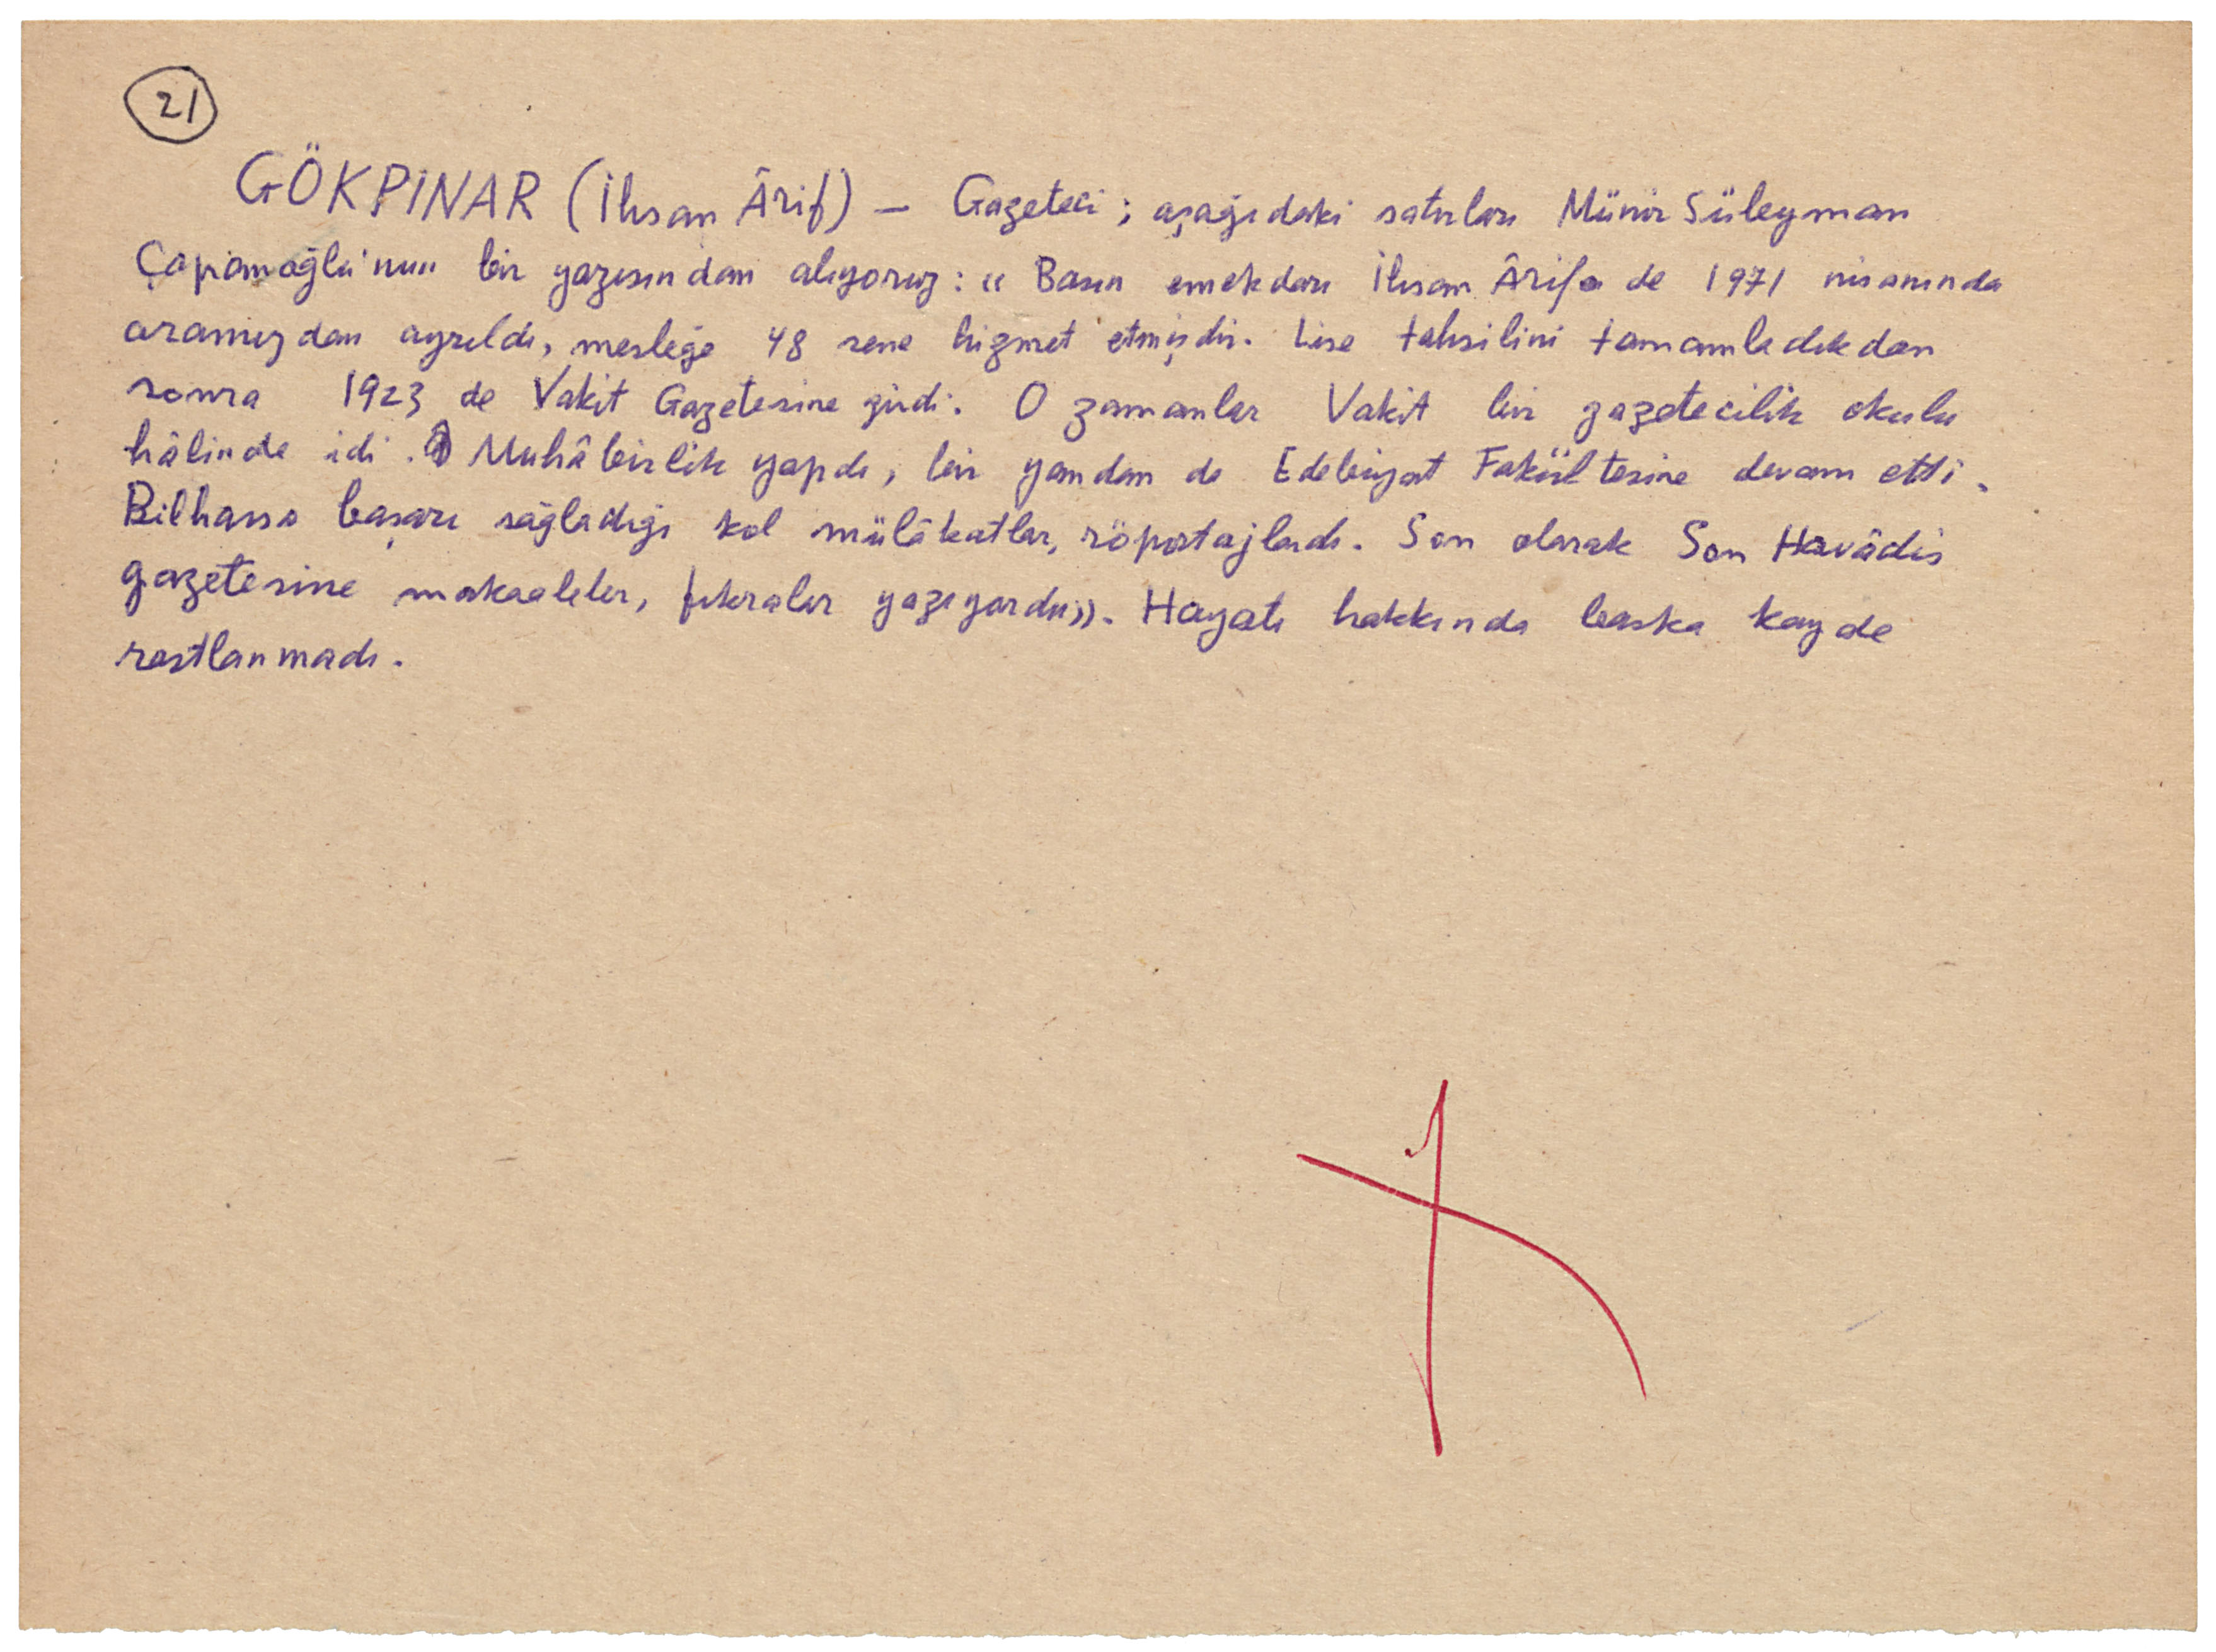 21
GÖKPINAR (İhsan Ârif) — Gazeteci; aşağıdaki satırları Münir Süleyman
Çapanoğlu'nun bir yazısından alıyoruz: « Basın emekdarı İhsan Ârif de 1971 nisanında
aramızdan ayrıldı, mesleğe 48 sene hizmet etmişdir. Lise tahsilini tamamladıkdan
sonra 1923 de Vakit Gazetesine girdi. O zamanlar Vakit bir gazetecilik okulu
hâlinde idi. Muhâbirlik yapdı, bir yandan da Edebiyat Fakültesine devam etti.
Bilhassa başarı sağladığı kol mülâkatlar, röportajlardı. Son olarak Son Havâdis
gazetesine makaaleler, fıkralar yazıyordu». Hayatı hakkında baska kayde
rastlanmadı.